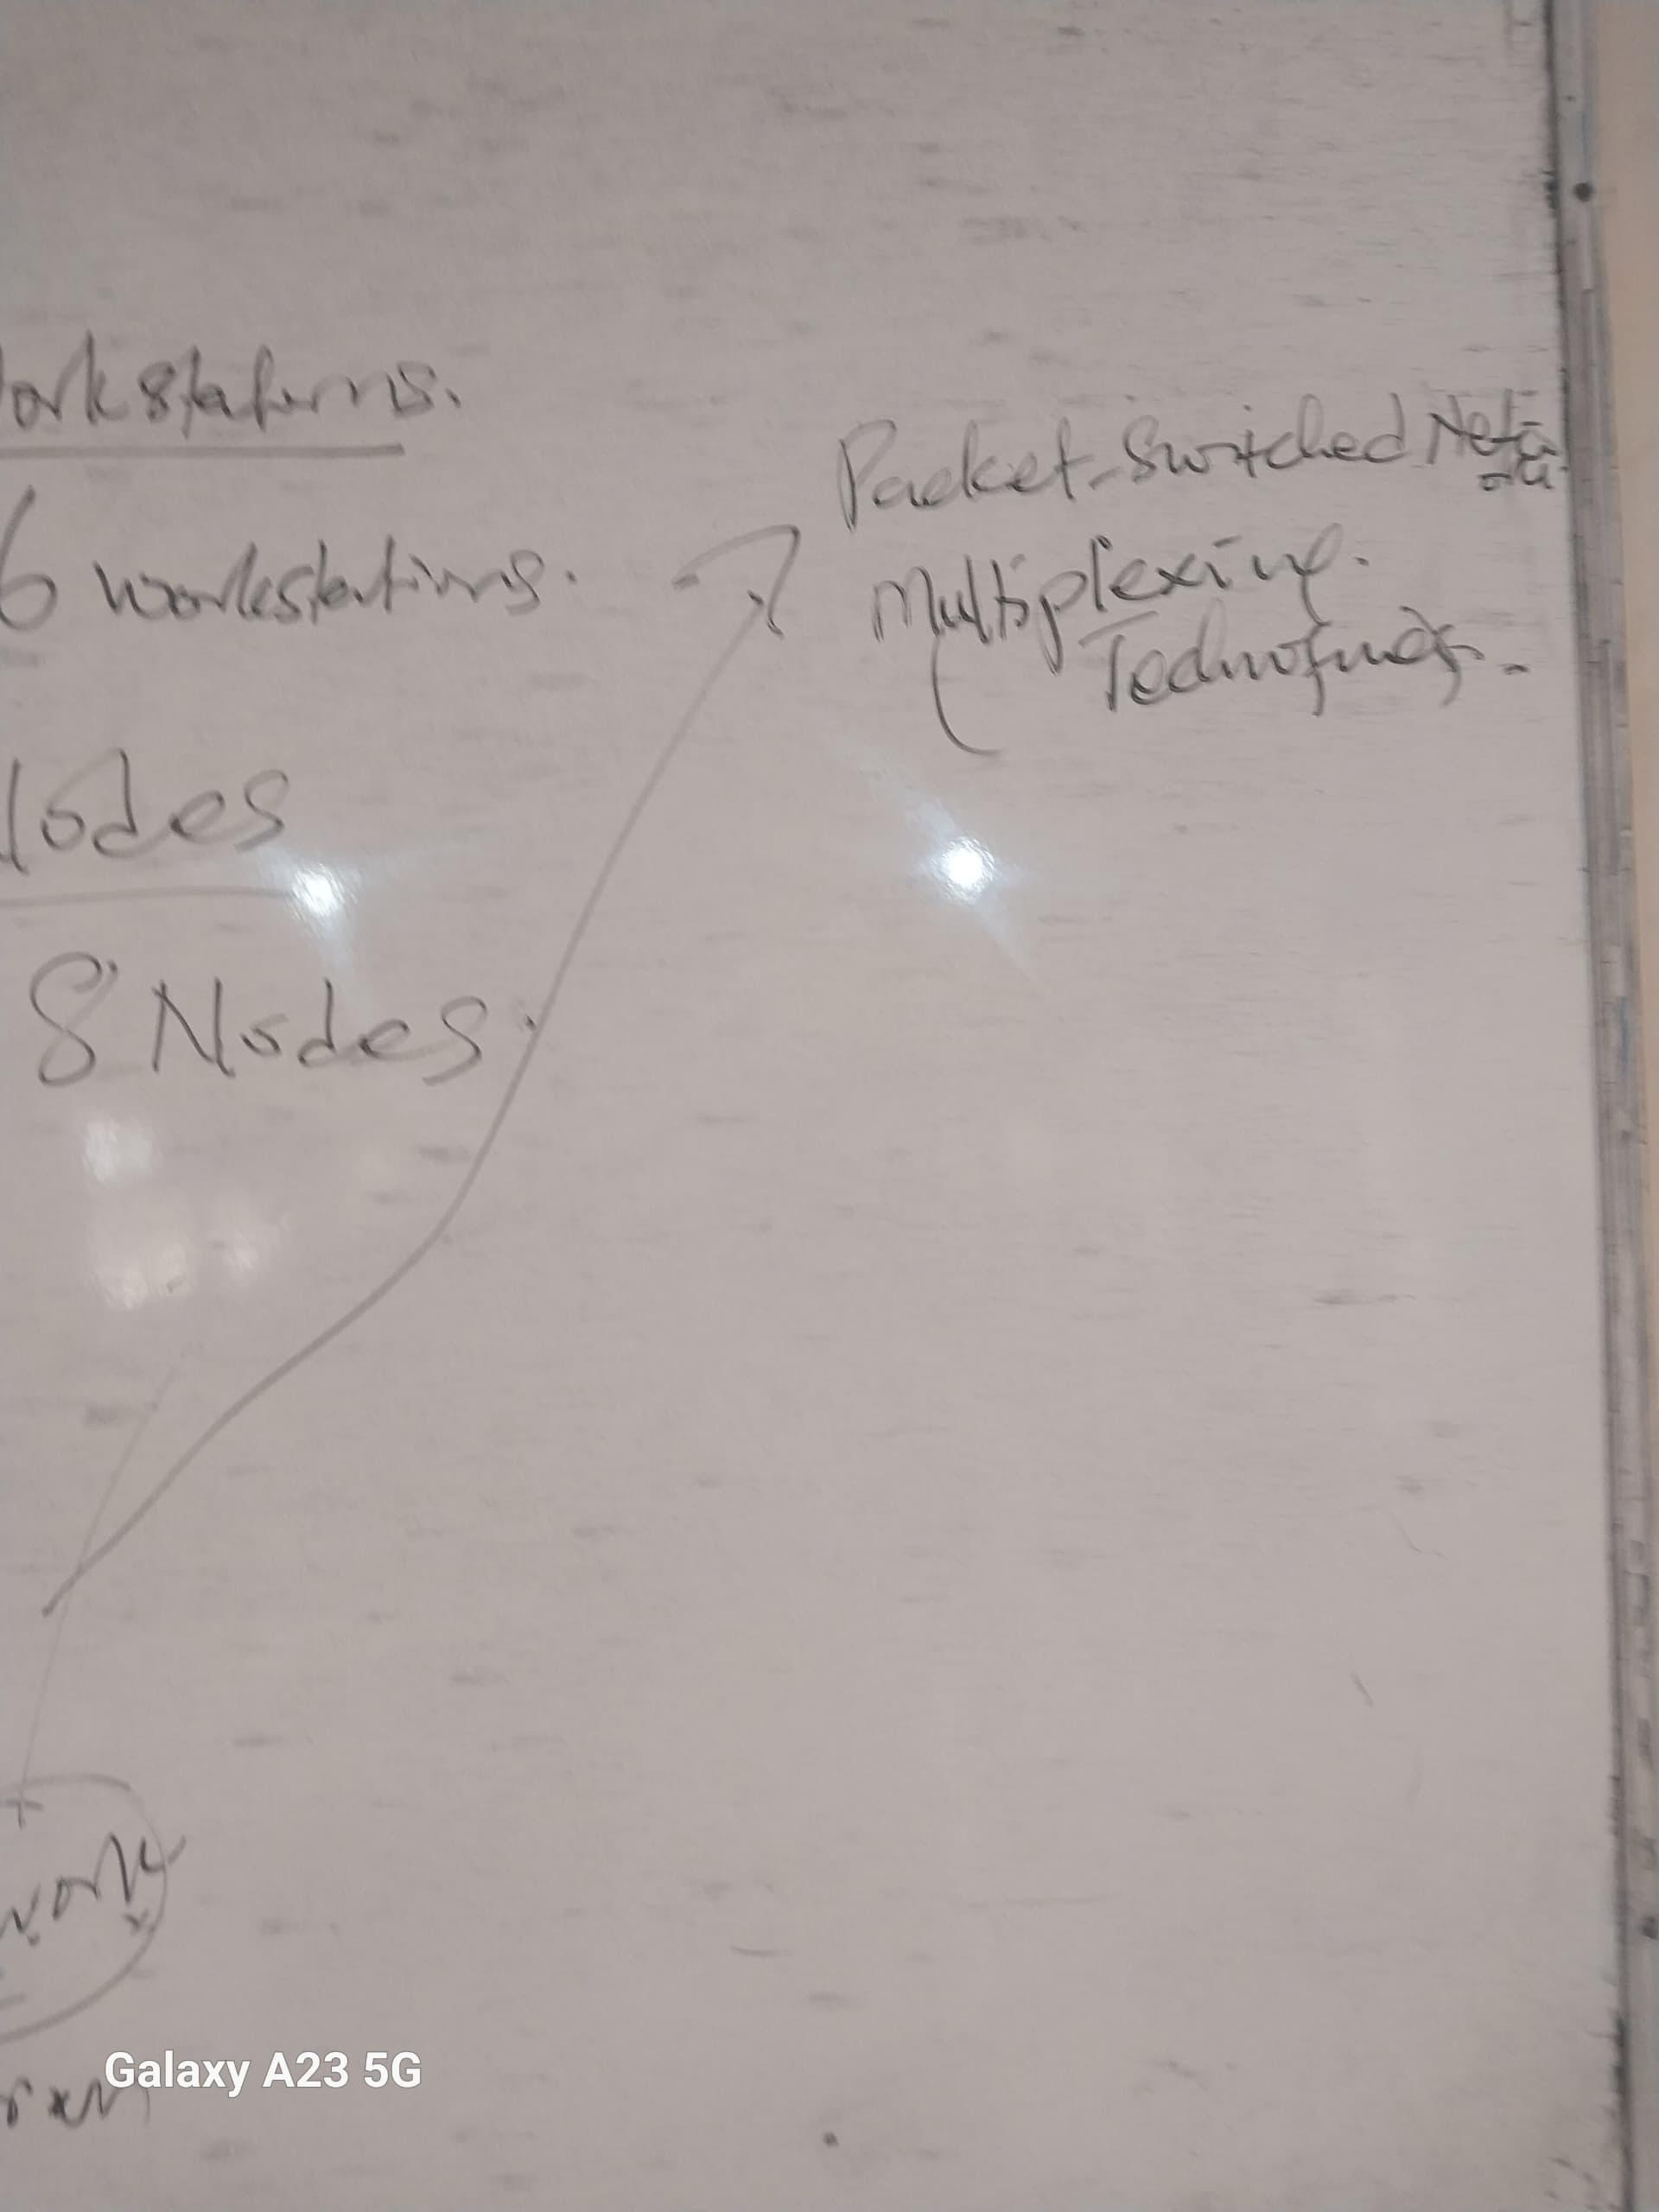 orkstations.
6 workstations.
lodes
8 Nodes.
Packet-Switched Netw
ork
Multiplexing.
Techniques.
work
Galaxy A23 5G